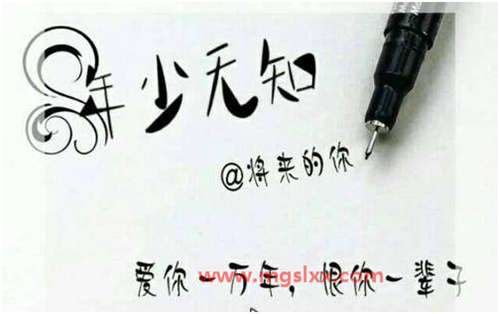 年少无知
@将来的你
爱你一万年，恨你一辈子